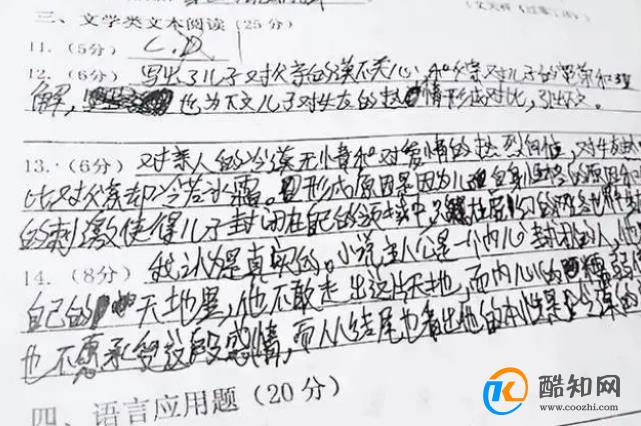 三、文学类文本阅读(25分)
11.(5分) C.D
12.(6分) 写出了儿子对父亲的漠不关心,和父亲对儿子的宽荣和理
解,也为下文儿子对女友的热情形成对比,引出下文。
13.·(6分)对亲人的冷漠无情和对爱情的热烈向往,对女友
比对父亲却冷若冰霜。形成原因是因为儿自身的原因和
的刺激使得儿子封闭在自己的领域中,
14.(8分) 我认为是真实的。小说主人公是一个内心封闭的人,他
自己的天地里,他不敢走出这片天地,而内心的
也不愿承受这段感情,而从结尾也看出他的本性是
四、语言应用题(20分)
酷知网
www.coozhi.com